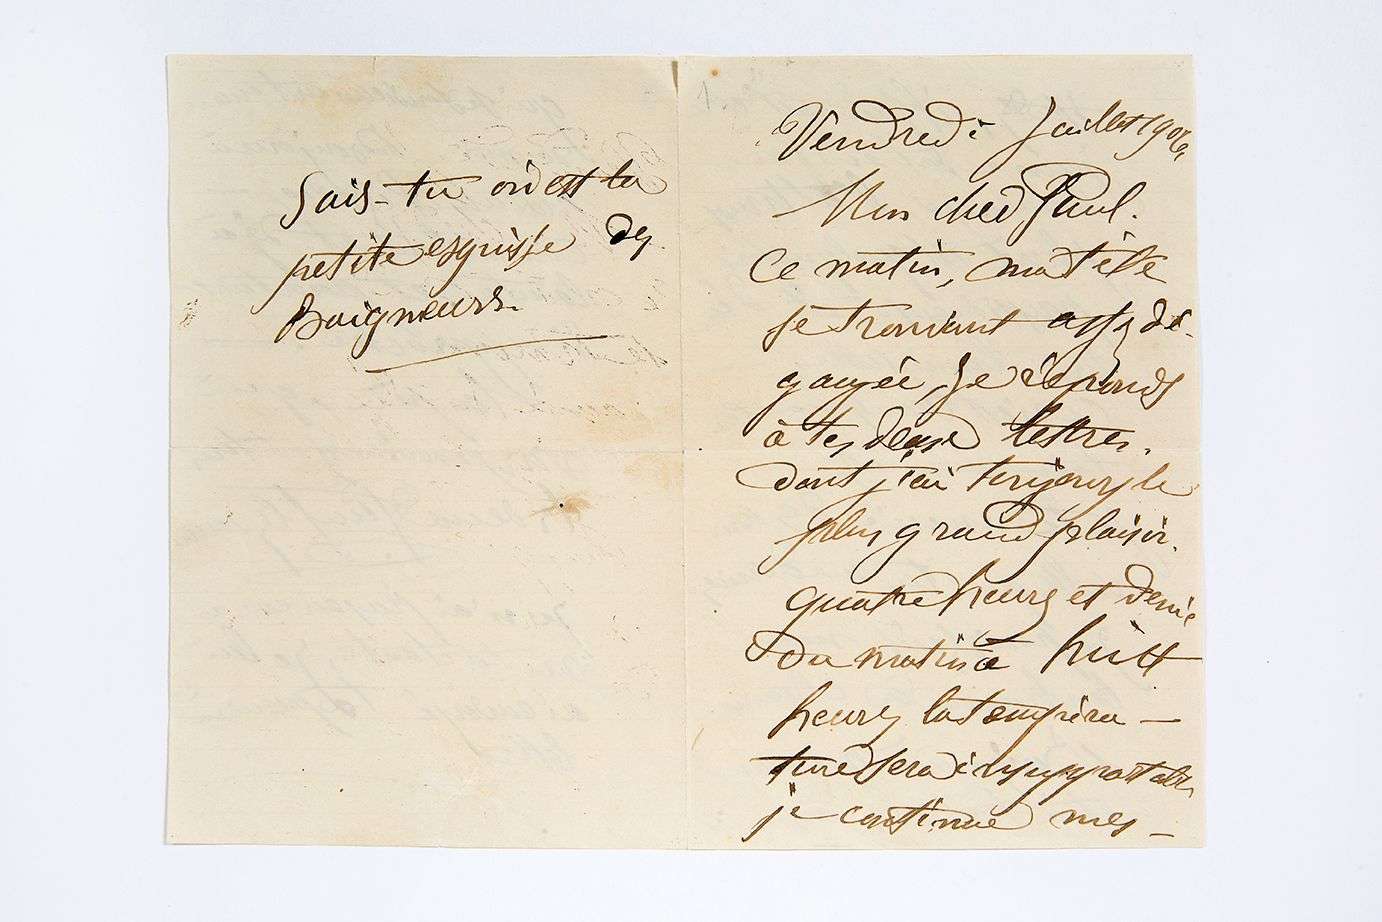 Vendredi Juillet 1906,
Mon cher Paul.
Ce matin, ma tête
se trouvant assez dé-
gagée, je réponds
à tes deux lettres.
dont j'ai toujours le
plus grand plaisir.
quatre heures et demie
du matin à huit
heures la tempéra-
ture sera insupportable
je continue mes-
Sais-tu où est la
petite esquisse des
Baigneurs.